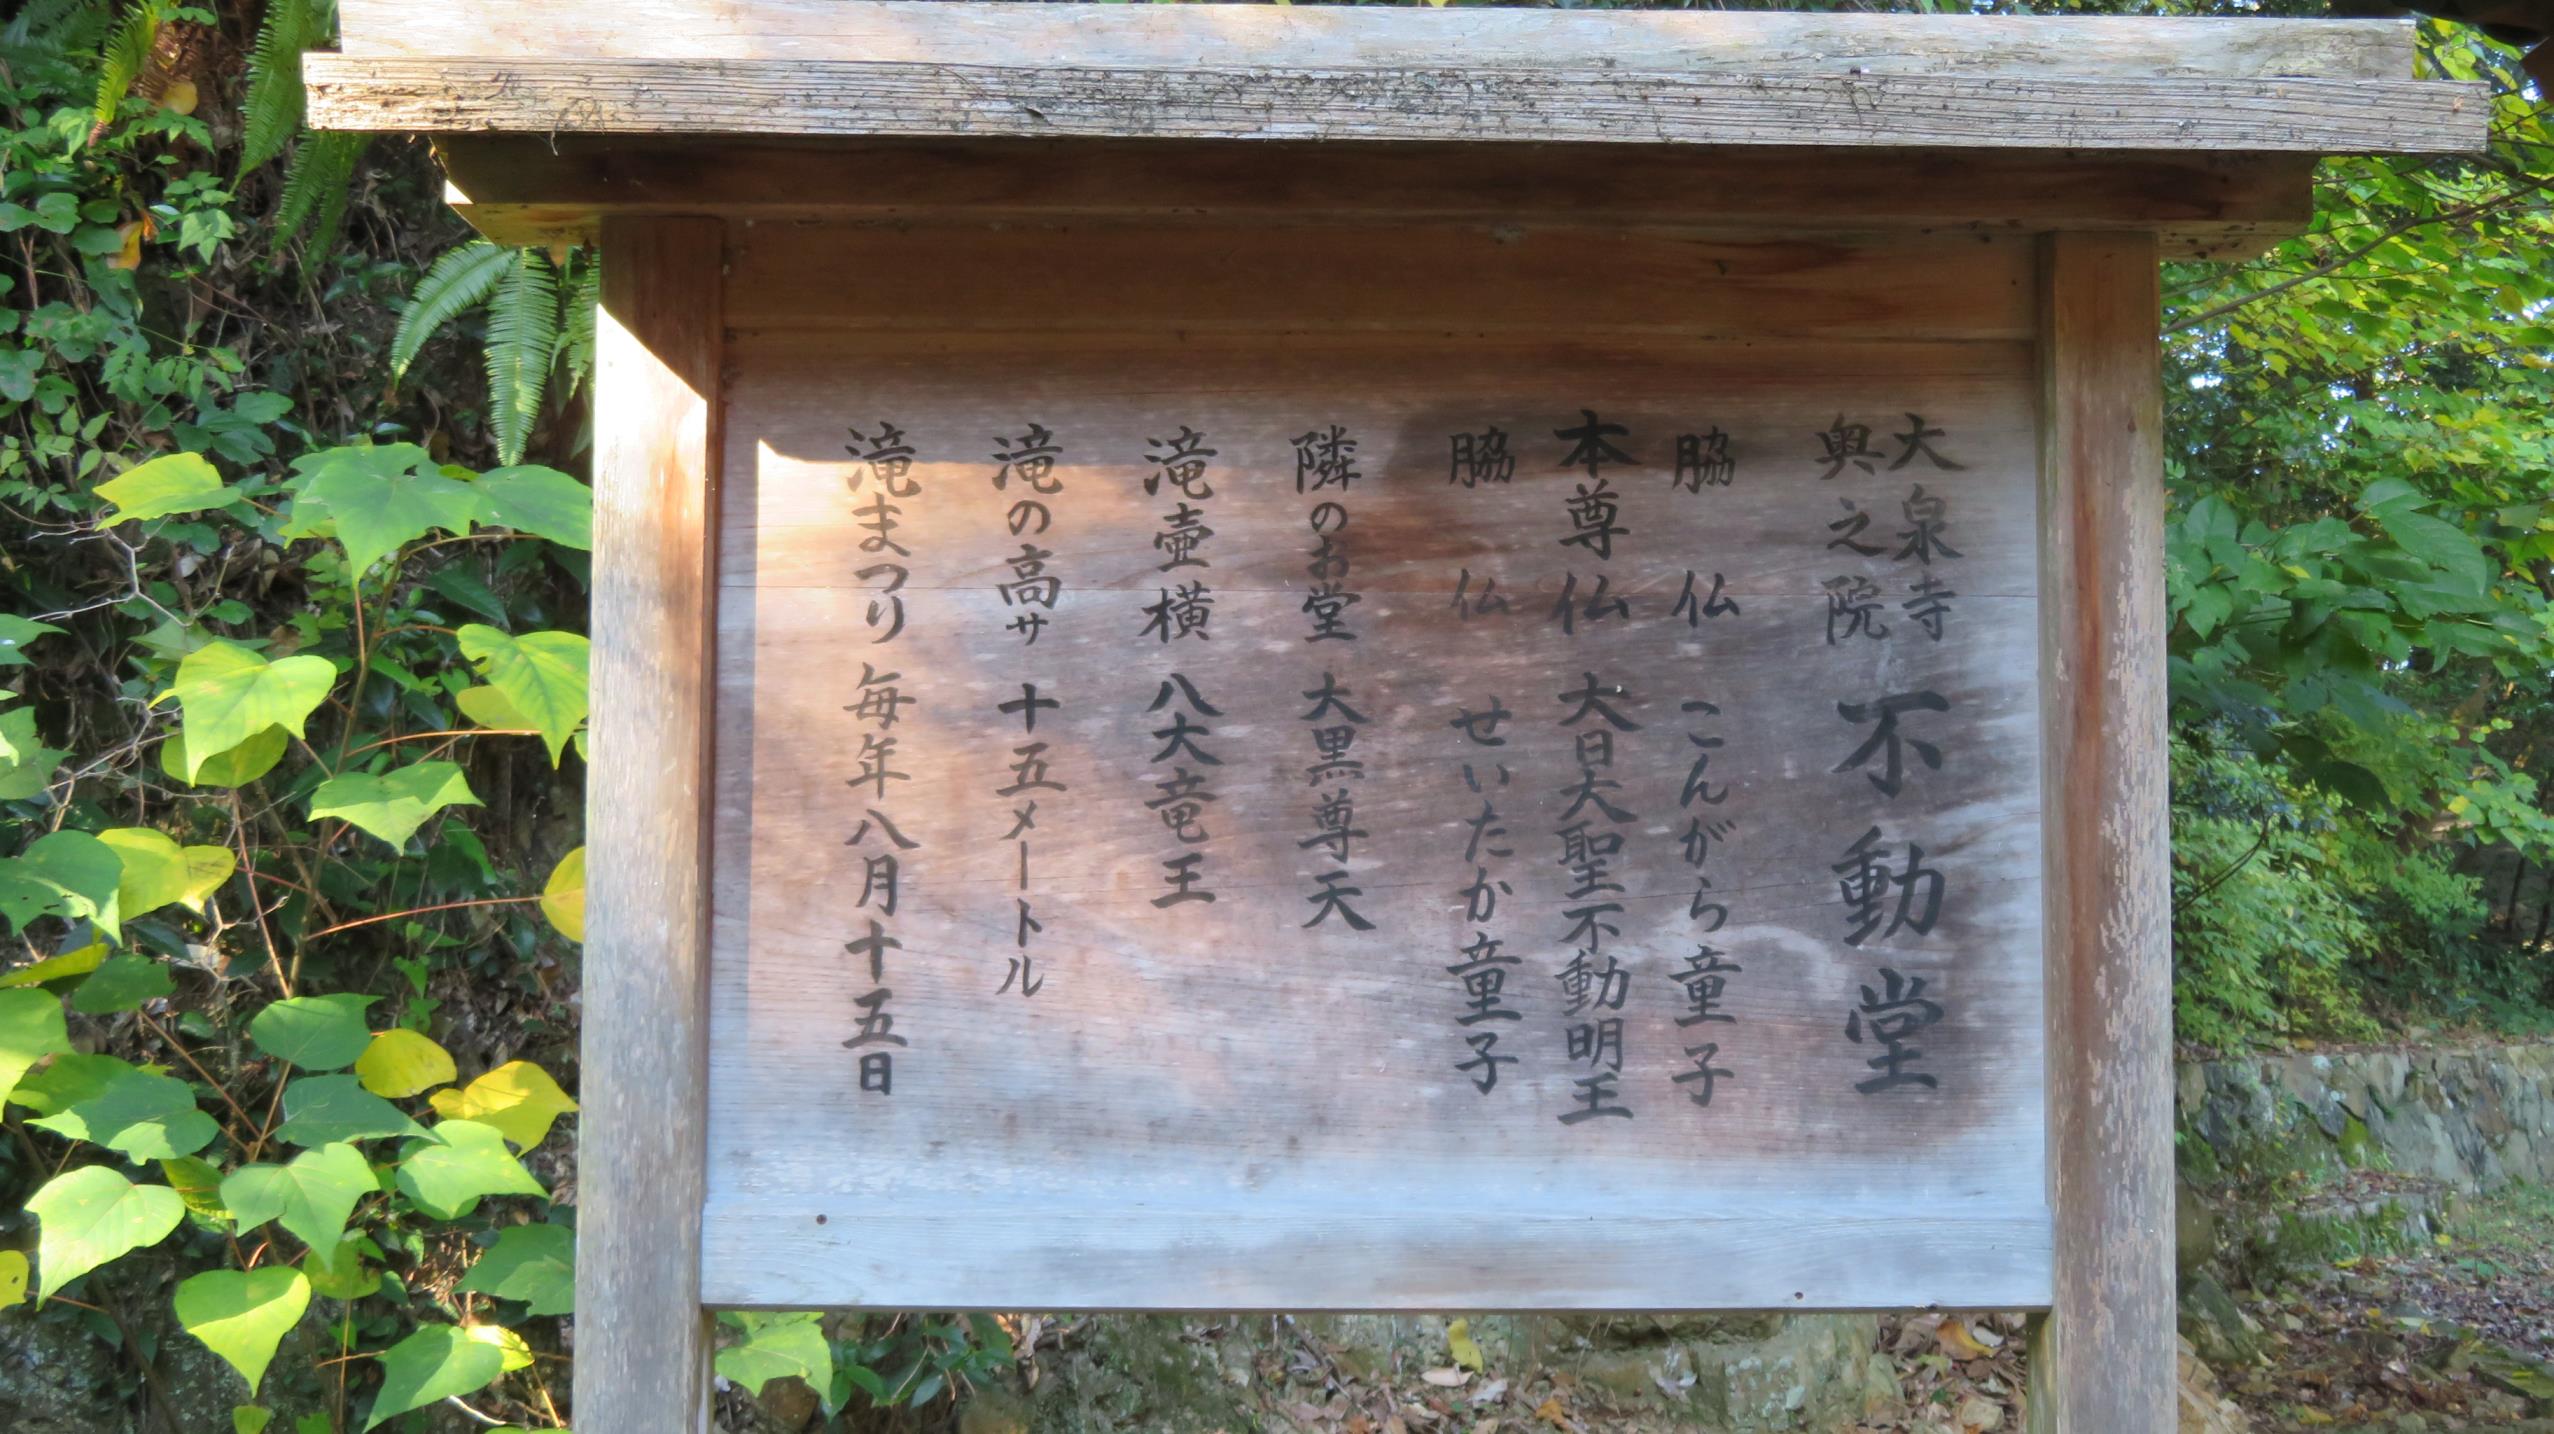 大泉寺
奥之院
不動堂
脇仏 こんがら童子
本尊仏 大日大聖不動明王
脇仏 せいたか童子
隣のお堂 大黒尊天
滝壷横 八大竜王
滝の高サ 十五メートル
滝まつり 毎年八月十五日